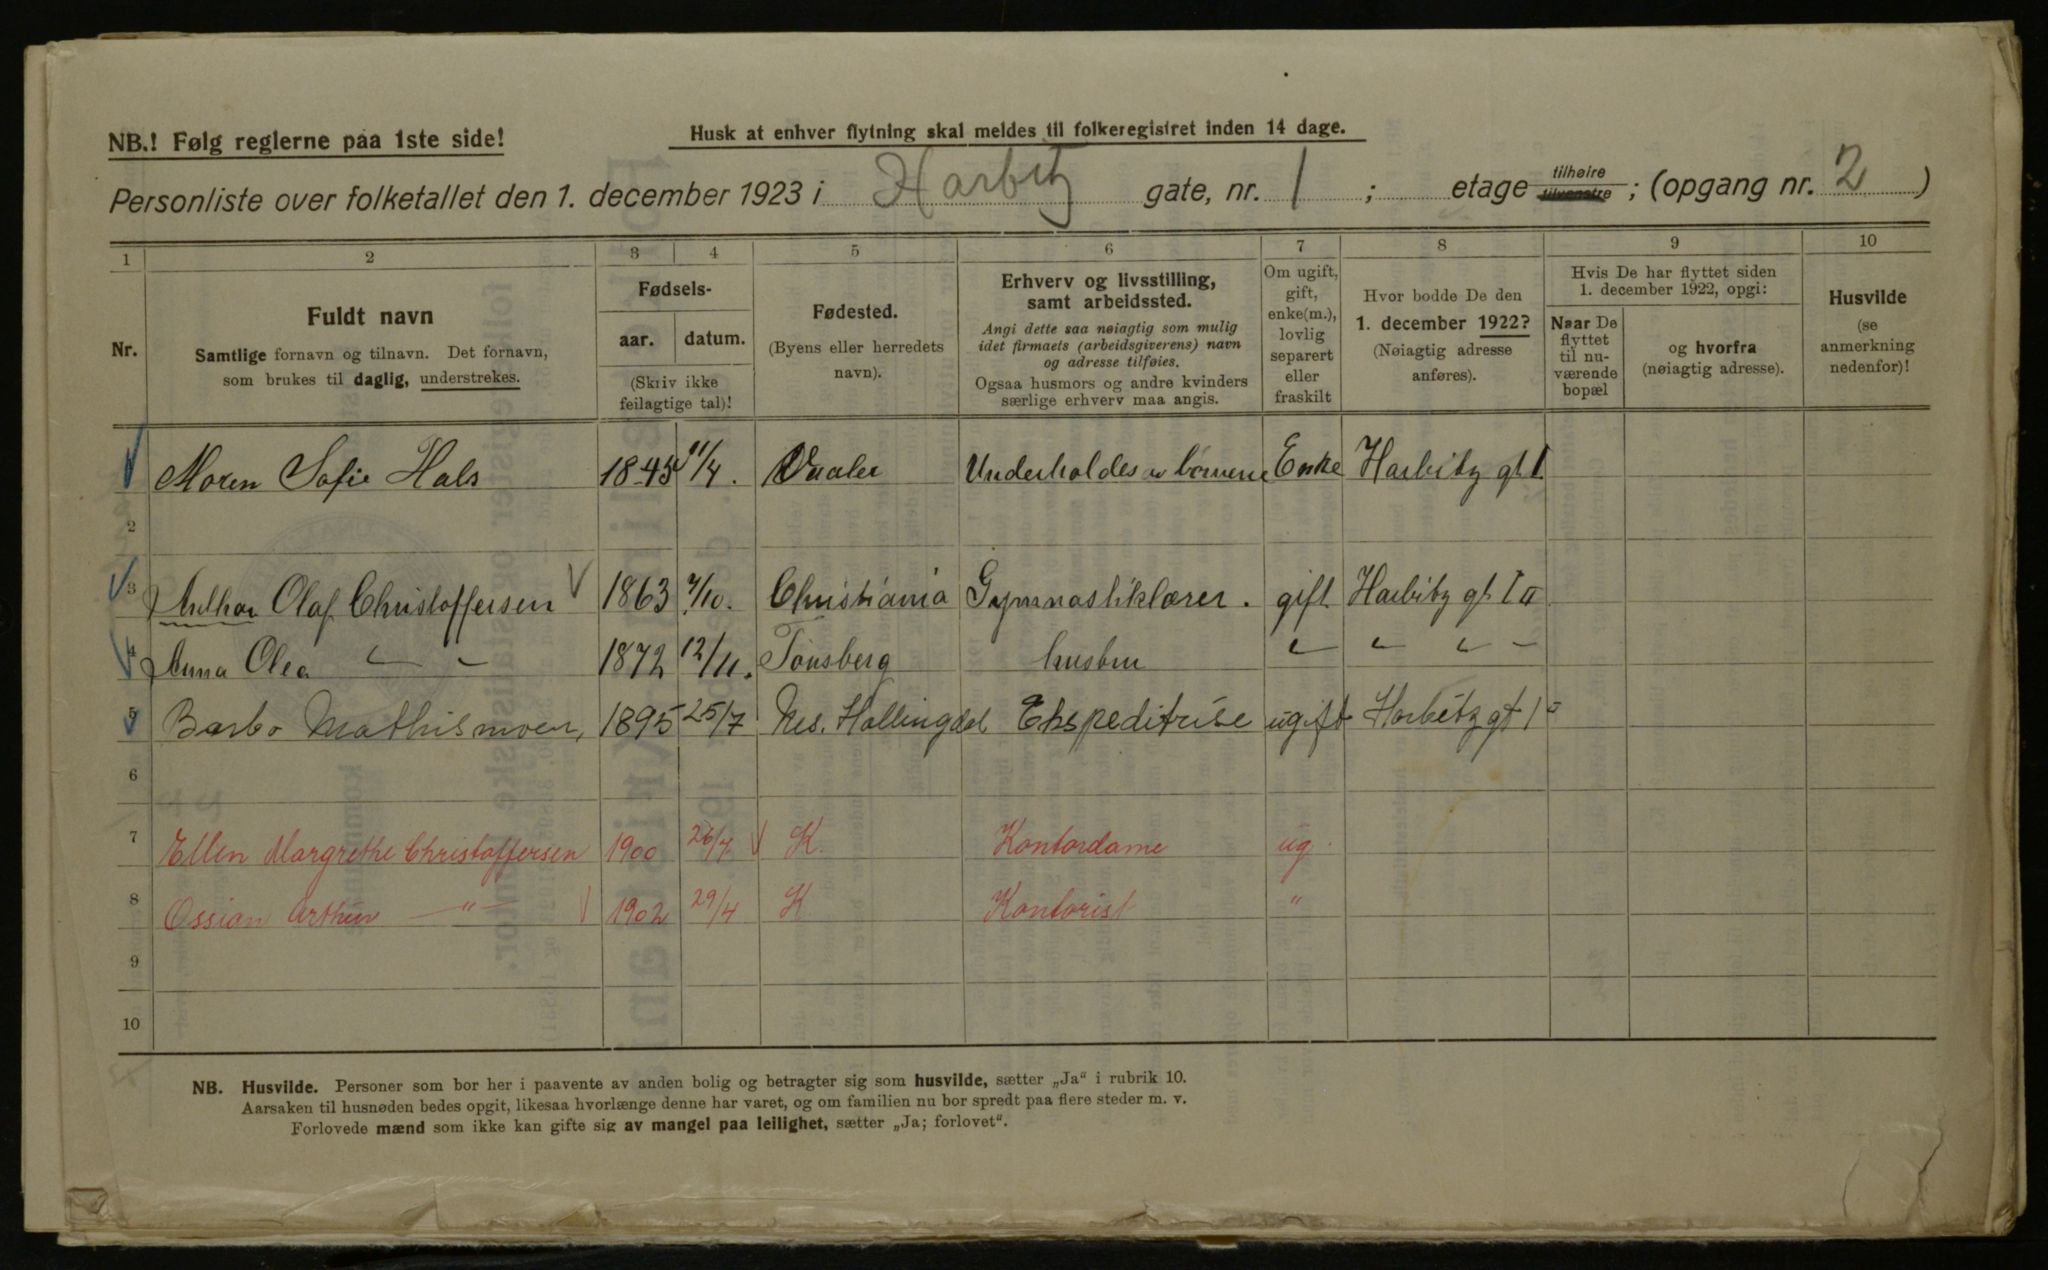 NB.! Følg reglerne paa 1ste side!
Husk at enhver flytning skal meldes til folkeregistret inden 14 dage.
Personliste over folketallet den 1. december 1923 i Harbitz gate, nr. 1 ; etage tilhøire tilvenstre ; (opgang nr. 2 )
1 2 3 4 5 6 7 8 9 10
Nr.
Fuldt navn
Samtlige fornavn og tilnavn. Det fornavn,
som brukes til daglig, understrekes.
Fødsels-
aar. datum.
(Skriv ikke
feilagtige tal)!
Fødested.
(Byens eller herredets
navn).
Erhverv og livsstilling,
samt arbeidssted.
Angi dette saa nøiagtig som mulig
idet firmaets (arbeidsgiverens) navn
og adresse tilføies.
Ogsaa husmors og andre kvinders
særlige erhverv maa angis.
Om ugift,
gift,
enke(m.),
lovlig
separert
eller
fraskilt
Hvor bodde De den
1. december 1922?
(Nøiagtig adresse
anføres).
Hvis De har flyttet siden
1. december 1922, opgi:
Naar De
flyttet
til nu-
værende
bopæl
og hvorfra
(nøiagtig adresse).
Husvilde
(se
anmerkning
nedenfor)!
Maren Sofie Hals 1845 11/4. Vaaler Underholdes av børnene Enke Harbitz gt 1
2
3 Arthur Olaf Christoffersen 1863 7/10. Christiania Gymnastiklærer. gift Harbitz gt. 1 II
4 Anna Olea " " 1872 12/11. Tønsberg husbru " " " "
5 Barbo Mathismoen, 1895 25/7 Nes. Hallingdal Ekspeditrise ugift Harbitz gt 1
6
7 Ellen Margrethe Christoffersen 1900 26/7 K. Kontordame ug.
8 Ossian Arthur —"— 1902 29/4 K Kontorist "
9
10
NB. Husvilde. Personer som bor her i paavente av anden bolig og betragter sig som husvilde, sætter „Ja“ i rubrik 10.
Aarsaken til husnøden bedes opgit, likesaa hvorlænge denne har varet, og om familien nu bor spredt paa flere steder m. v.
Forlovede mænd som ikke kan gifte sig av mangel paa leilighet, sætter „Ja; forlovet“.